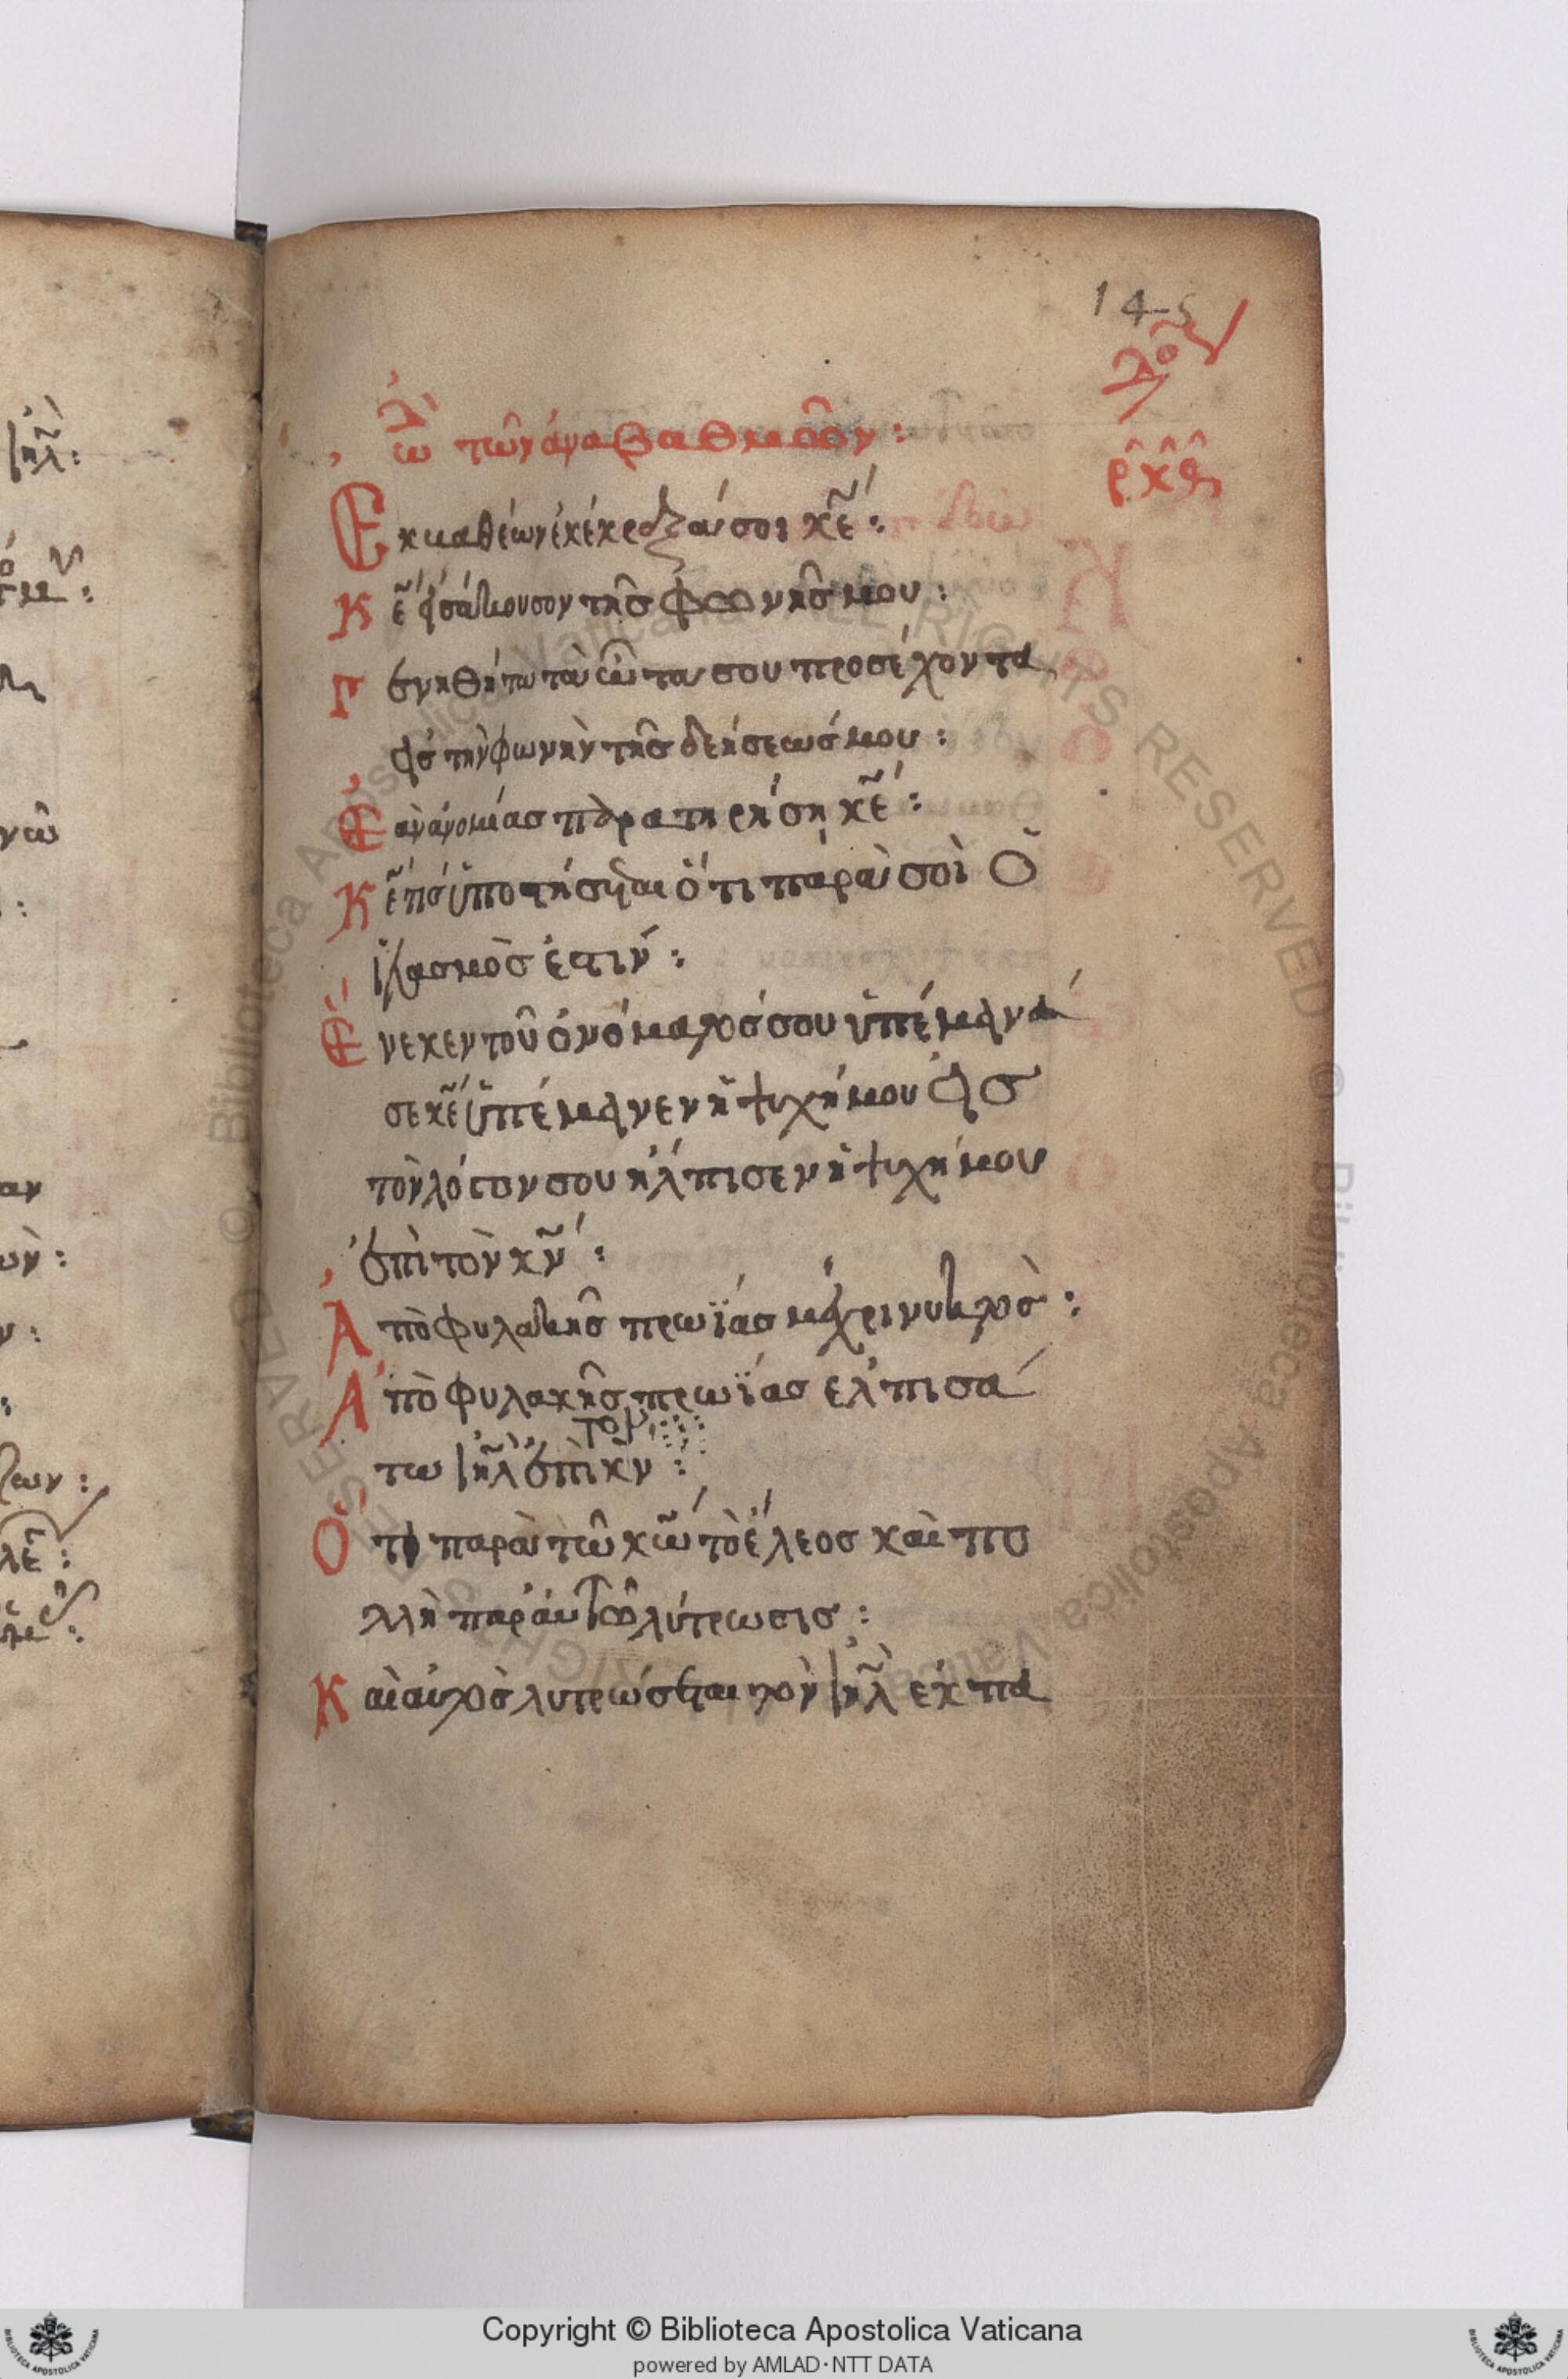 145
ρκθ
ὠδὴ τῶν ἀναβαθμῶν:
Ἐκ βαθέων ἐκέκραξά σοι κε̃:
κε̃ εἰσάκουσον τῆσ φωνῆσ μου:
Γενηθήτω τὰ ὦτα σου προσέχοντα
εἰσ τὴν φωνὴν τῆσ δεήσεωσ μου:
Ἐὰν ἀνομίασ παρατηρήση κε̃:
κε̃ τίσ ὑποστήσεται ὅτι παρὰ σοὶ ὁ
ἱλασμόσ ἐστιν:
Ἕνεκεν τοῦ ὀνόματόσ σου ὑπέμεινά
σε κε̃ ὑπέμεινεν ἡ ψυχή μου εἰσ
τὸν λόγον σου ἤλπισεν ἡ ψυχή μου
ἐπὶ τὸν κν̃:
Ἀπὸ φυλακῆσ πρωΐασ μέχρι νυκτὸσ:
Ἀπὸ φυλακῆσ πρωΐασ ελπισά
τὸν
τω ιη̃λ ἐπὶ κν̃:
Ὅτι παρὰ τῶ κω̃ τὸ ἔλεοσ καὶ πο
λλὴ παρ' αὐτῶ λύτρωσισ:
Καὶ αὐτὸσ λυτρώσεται τὸν ιη̃λ ἐκ πα
Copyright © Biblioteca Apostolica Vaticana
powered by AMLAD·NTT DATA